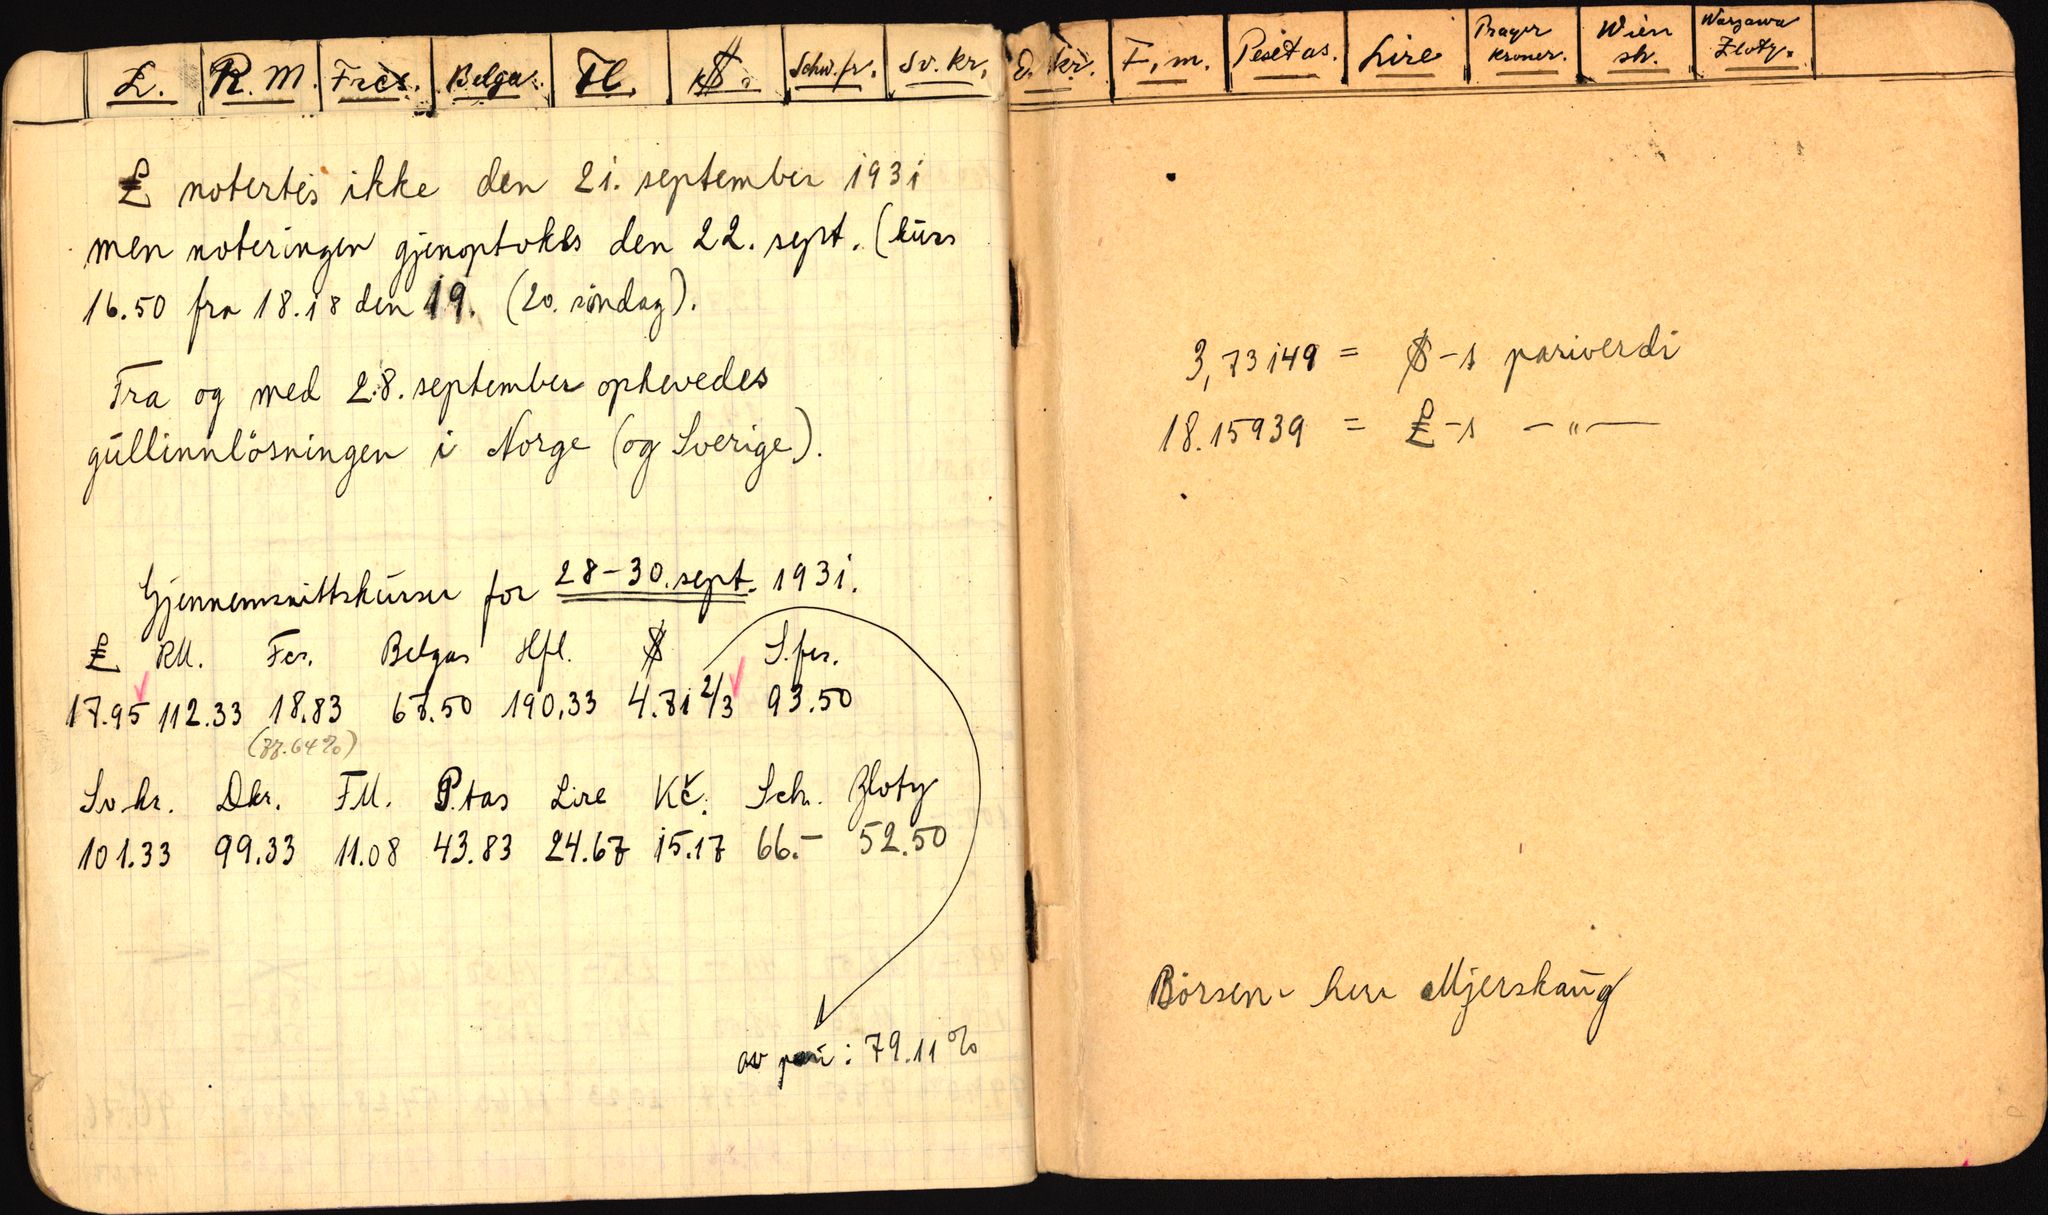 £. R.M. Frcs. Belga. Fl. $. Schw.fr. Sv. kr. D. kr. F.m. Pesetas. Lire Prager kroner. Wien sh. Warzawa Zloty.
£ notertes ikke den 21. september 1931
men noteringen gjenoptokes den 22. sept. (kurs
16.50 fra 18.18 den 19. (20. söndag).
Fra og med 28. september ophevedes
gullinnlösningen i Norge (og Sverige).
Gjennemsnittskurser for 28-30. sept. 1931.
£ RM. Fcr. Belgas Hfl. $ S.fcr.
17.95 112.33 18.83 67.50 190.33 4.71 2/3 93.50
Sv.kr. Dkr. FM. P.tas Lire Kč. Sch. Zloty
101.33 99.33 11.08 43.83 24.67 15.17 66.- 52.50
av pari: 79.11%
3,73149 = $-s pariverdi
18.15939 = £-s -"-
Börsen - herr Mjerskaug